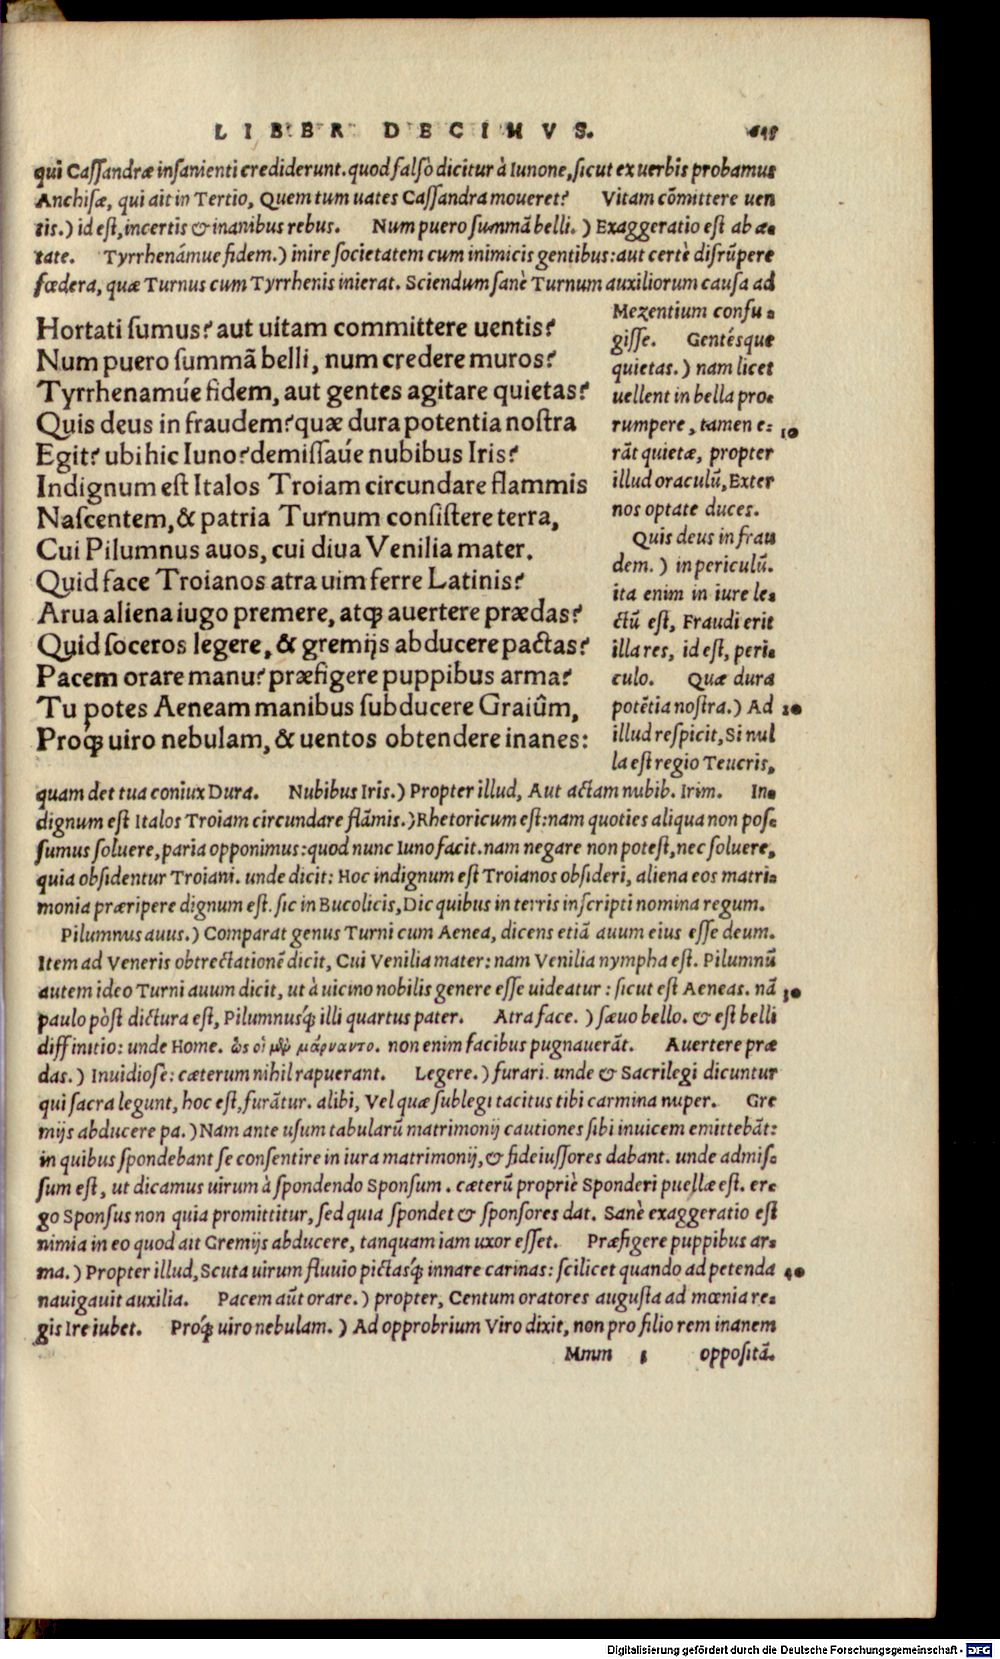 LIBER DECIMVS.
qui Cassandræ insanienti crediderunt. quod falsò dicitur à Iunone, sicut ex uerbis probamus
Anchisæ, qui ait in Tertio, Quem tum uates Cassandra moueret? Vitam cõmittere uen
tis.) id est, incertis & inanibus rebus. Num puero summã belli.) Exaggeratio est ab æ-
tate. Tyrrhenámue fidem.) inire societatem cum inimicis gentibus: aut certè disrũpere
fœdera, quæ Turnus cum Tyrrhenis inierat. Sciendum sanè Turnum auxiliorum causa ad
Mezentium confu-
gisse. Gentésque
quietas.) nam licet
uellent in bella pro-
rumpere, tamen e- 10
rãt quietæ, propter
illud oraculũ, Exter
nos optate duces.
Quis deus in frau
dem.) in periculũ.
ita enim in iure le-
ctũ est, Fraudi erit
illa res, id est, peri-
culo. Quæ dura
potẽtia nostra.) Ad 20
illud respicit, Si nul
la est regio Teucris,
Hortati sumus? aut uitam committere uentis?
Num puero summã belli, num credere muros?
Tyrrhenamúe fidem, aut gentes agitare quietas?
Quis deus in fraudem? quæ dura potentia nostra
Egit? ubi hic Iuno? demissaúe nubibus Iris?
Indignum est Italos Troiam circundare flammis
Nascentem, & patria Turnum consistere terra,
Cui Pilumnus auos, cui diua Venilia mater.
Quid face Troianos atra uim ferre Latinis?
Arua aliena iugo premere, atq; auertere prædas?
Quid soceros legere, & gremijs abducere pactas?
Pacem orare manu? præfigere puppibus arma?
Tu potes Aeneam manibus subducere Graiûm,
Proq́; uiro nebulam, & uentos obtendere inanes:
quam det tua coniux Dura. Nubibus Iris.) Propter illud, Aut actam nubib. Irim. In-
dignum est Italos Troiam circundare flãmis.) Rhetoricum est: nam quoties aliqua non pos-
sumus soluere, paria opponimus: quod nunc Iuno facit. nam negare non potest, nec soluere,
quia obsidentur Troiani. unde dicit: Hoc indignum est Troianos obsideri, aliena eos matri-
monia præripere dignum est. sic in Bucolicis, Dic quibus in terris inscripti nomina regum.
Pilumnus auus.) Comparat genus Turni cum Aenea, dicens etiã auum eius esse deum.
Item ad Veneris obtrectationẽ dicit, Cui Venilia mater: nam Venilia nympha est. Pilumnũ
autem ideo Turni auum dicit, ut à uicino nobilis genere esse uideatur: sicut est Aeneas. nã 30
paulo pòst dictura est, Pilumnusq́; illi quartus pater. Atra face.) sæuo bello. & est belli
diffinitio: unde Home. ὣς οἱ μὲν μάρναντο. non enim facibus pugnauerãt. Auertere præ
das.) Inuidiose: cæterum nihil rapuerant. Legere.) furari. unde & Sacrilegi dicuntur
qui sacra legunt, hoc est, furãtur. alibi, Vel quæ sublegi tacitus tibi carmina nuper. Gre
mijs abducere pa.) Nam ante usum tabularũ matrimonij cautiones sibi inuicem emittebãt:
in quibus spondebant se consentire in iura matrimonij, & fideiussores dabant. unde admis-
sum est, ut dicamus uirum à spondendo Sponsum. cæterũ propriè Sponderi puellæ est. er-
go Sponsus non quia promittitur, sed quia spondet & sponsores dat. Sanè exaggeratio est
nimia in eo quod ait Gremijs abducere, tanquam iam uxor esset. Præfigere puppibus ar-
ma.) Propter illud, Scuta uirum fluuio pictasq́; innare carinas: scilicet quando ad petenda 40
nauigauit auxilia. Pacem aũt orare.) propter, Centum oratores augusta ad mœnia re-
gis Ire iubet. Proq́; uiro nebulam.) Ad opprobrium Viro dixit, non pro filio rem inanem
Mmm oppositã.
Digitalisierung gefördert durch die Deutsche Forschungsgemeinschaft - DFG